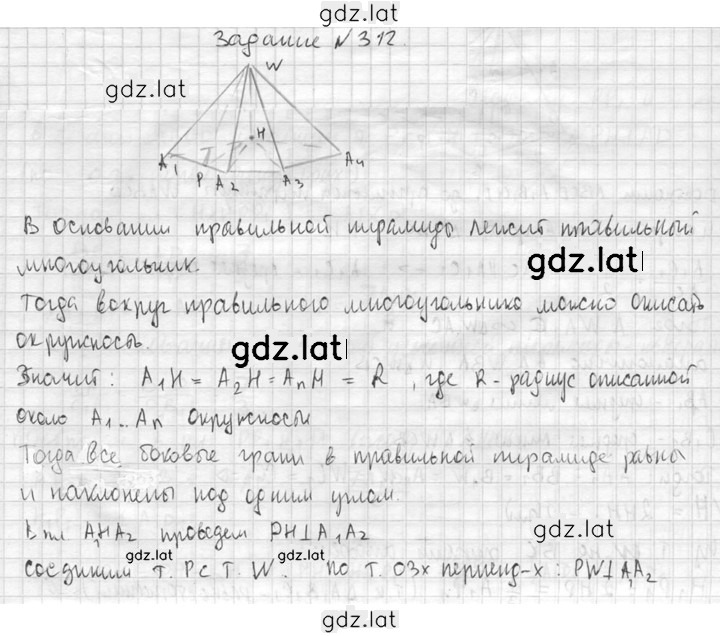 gdz.lat
Задание №312.
W
gdz.lat
H
A1 P A2 A3 A4
В основании правильной пирамиды лежит правильный
многоугольник.
gdz.lat
Тогда вокруг правильного многоугольника можно описать
окружность.
gdz.lat
Значит: A1H = A2H = AnH = R, где R - радиус описанной
около A1..An окружности
Тогда все боковые грани в правильной пирамиде равны
и наклонены под одним углом.
В пл A1HA2 проведем PH⊥A1A2
gdz.lat
gdz.lat gdz.lat
соединим т. P с т. W. по т. о 3х перпенд-х: PW⊥A1A2
gdz.lat